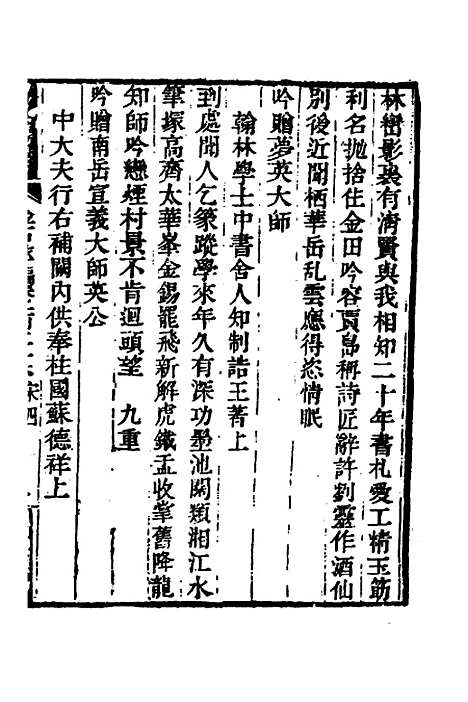 林巒影裏有清賢與我相知二十年書札愛工精玉筯
利名拋捨住金田吟容賈島稱詩匠辭許劉靈作酒仙
別後近聞栖華岳乱雲應得恣情眠
吟贈夢英大師
翰林學士中書舍人知制誥王著上
到處聞人乞篆蹤學來年久有深功墨池闊類湘江水
筆塚高齊太華峯金錫罷飛新解虎鐵盂收掌舊降龍
知師吟戀煙村景不肯迴頭望 九重
吟贈南岳宣義大師英公
中大夫行右補闕內供奉柱國蘇德祥上